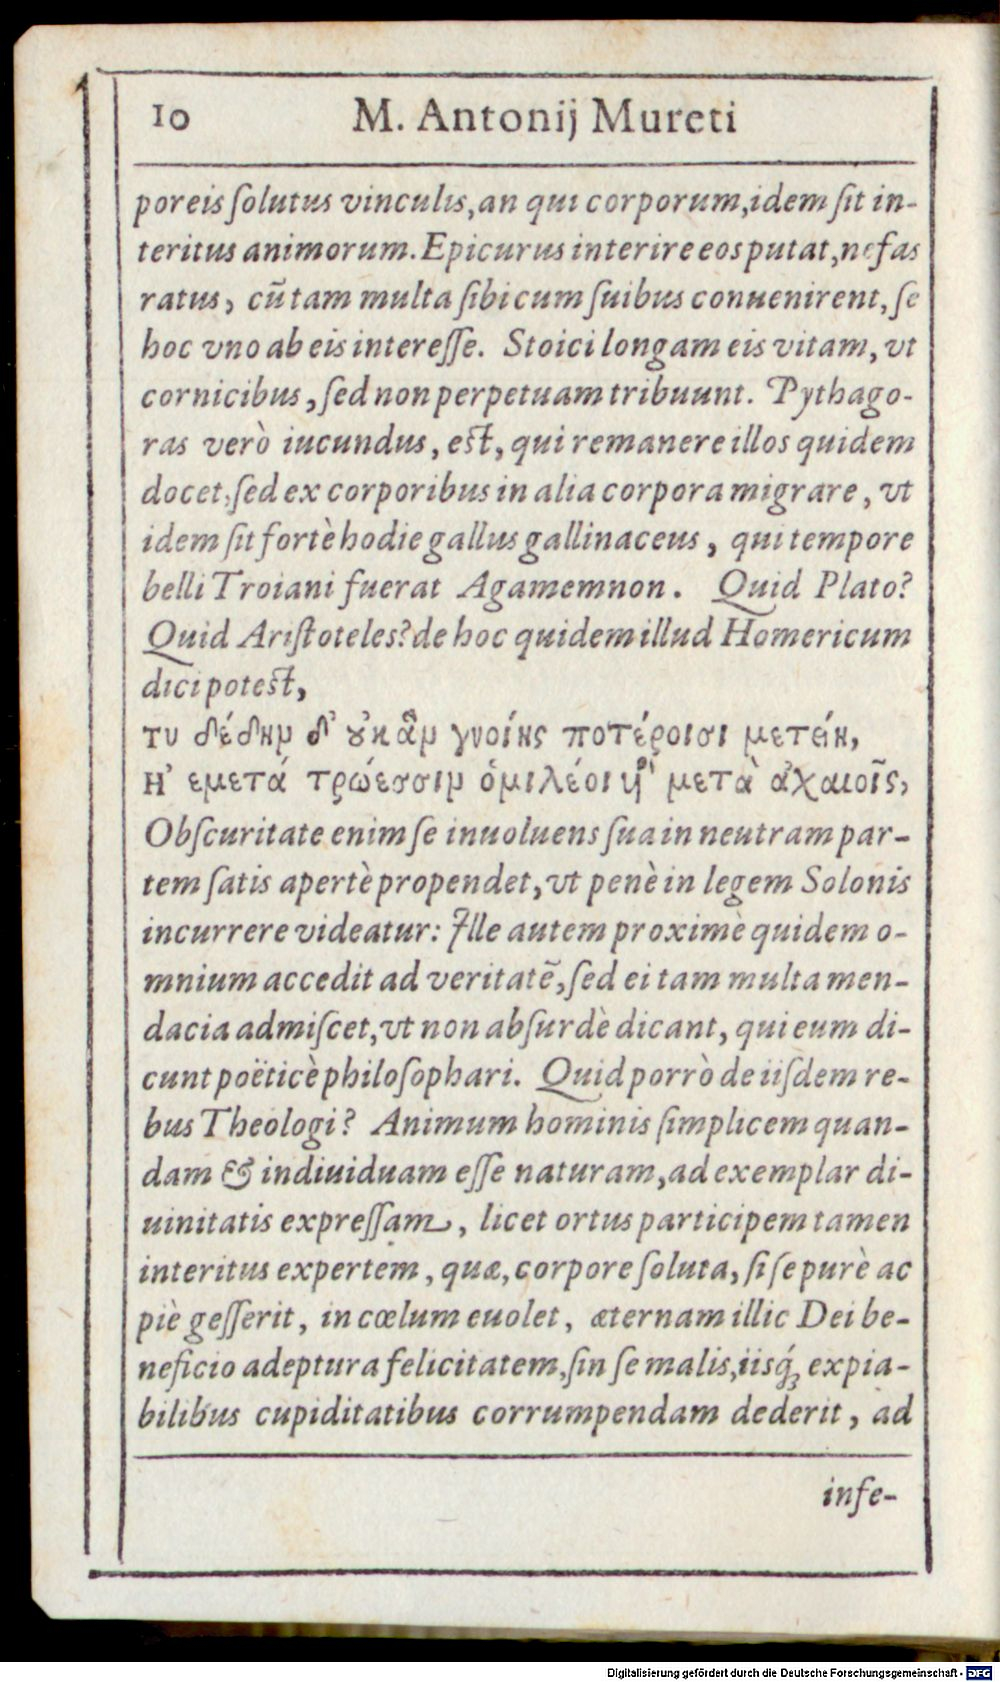 10 M. Antonij Mureti
poreis ſolutus vinculis, an qui corporum, idem ſit in-
teritus animorum. Epicurus interire eos putat, nefas
ratus, cũ tam multa ſibi cum ſuibus conuenirent, ſe
hoc vno ab eis intereſſe. Stoici longam eis vitam, vt
cornicibus, ſed non perpetuam tribuunt. Pythago-
ras verò iucundus, eſt, qui remanere illos quidem
docet, ſed ex corporibus in alia corpora migrare, vt
idem ſit fortè hodie gallus gallinaceus, qui tempore
belli Troiani fuerat Agamemnon. Quid Plato?
Quid Ariſtoteles? de hoc quidem illud Homericum
dici poteſt,
τυ δέδημ δ' ȣ̓κ ἂμ γνοίης ποτέροισι μετείη,
Η' εμετά τρώεσσιμ ὁμιλέοι ἢ μετὰ ἀχαιοῖς,
Obſcuritate enim ſe inuoluens ſua in neutram par-
tem ſatis apertè propendet, vt penè in legem Solonis
incurrere videatur: Ille autem proximè quidem o-
mnium accedit ad veritatẽ, ſed ei tam multa men-
dacia admiſcet, vt non abſurdè dicant, qui eum di-
cunt poëticè philoſophari. Quid porrò de iiſdem re-
bus Theologi? Animum hominis ſimplicem quan-
dam & indiuiduam eſſe naturam, ad exemplar di-
uinitatis expreſſam, licet ortus participem tamen
interitus expertem, quæ, corpore ſoluta, ſi ſe purè ac
piè geſſerit, in cœlum euolet, æternam illic Dei be-
neficio adeptura felicitatem, ſin ſe malis, iisq́ꝫ expia-
bilibus cupiditatibus corrumpendam dederit, ad
infe-
Digitalisierung gefördert durch die Deutsche Forschungsgemeinschaft - DFG